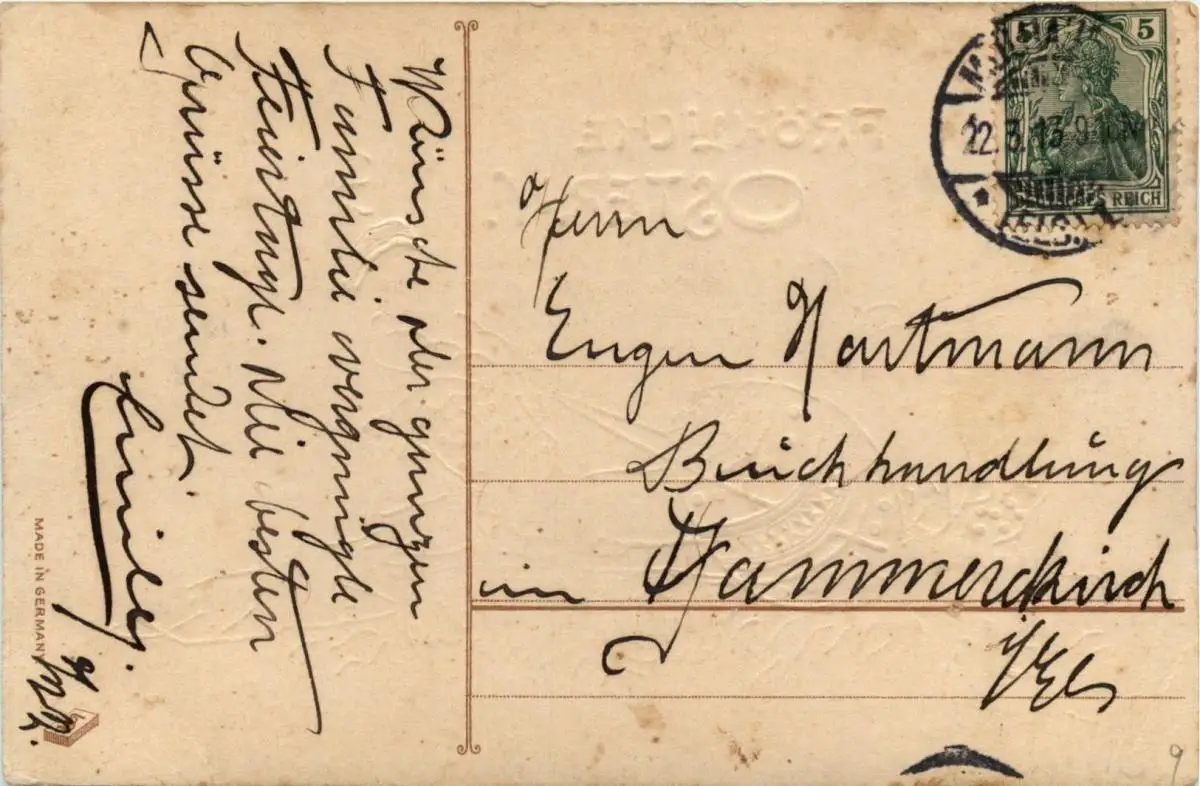 Wünsche der ganzen
Familie vergnügte
Feiertage. Die besten
Grüsse sendet
MADE IN GERMANY
FRÖHLICHE
OSTERN
5 5
DEUTSCHES REICH
22.3.13
Herrn
Eugen Hartmann
Buchhandlung
in Dammerkirch
i/Els
9